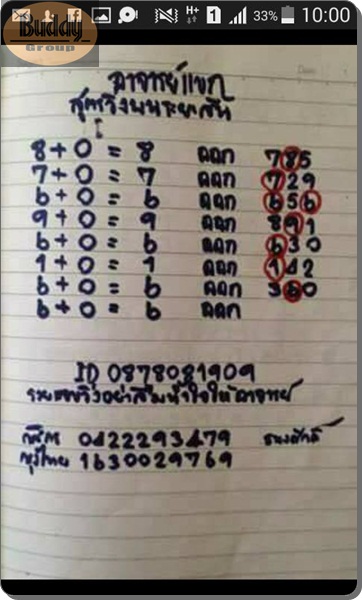 Buddy
Group
H+ 1 33% 10:00
อาจารย์แขก
สูตรวิ่งบน
8+0 = 8 ออก 785
7+0 = 7 ออก 729
6+0 = 6 ออก 656
9+0 = 9 ออก 891
6+0 = 6 ออก 630
1+0 = 1 ออก 142
6+0 = 6 ออก 360
6+0 = 6 ออก
ID 0878081909
อย่าลืมน้ำใจให้อาจารย์
กสิกร 0422293479 ธนงศักดิ์
กรุงไทย 1630029769